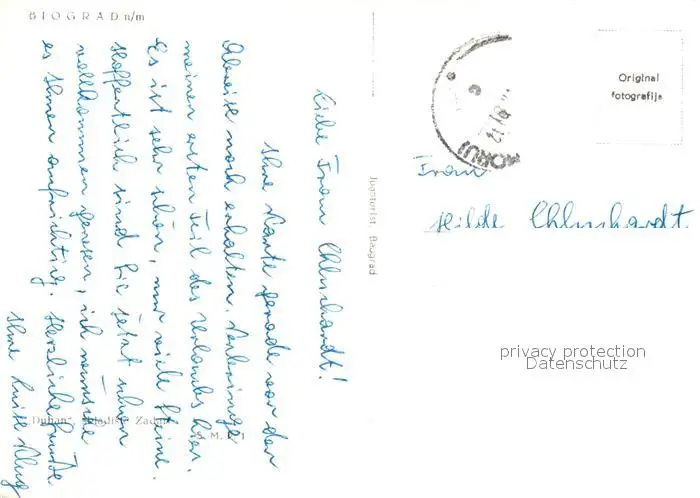 BIOGRAD n/m
Liebe Frau Ehlerhardt!
Ihre Karte gerade vor der
Abreise noch erhalten. Verbringe
meinen ersten Teil des Urlaubs hier.
Es ist sehr schön, nur viele Steine.
Hoffentlich sind Sie jetzt schon
vollkommen genesen, ich wünsche
es Ihnen aufrichtig. Herzliche Grüße
Ihre Luise Klug
Jugoturist, Beograd
Original
fotografija
Frau
Hilde
privacy protection
Datenschutz